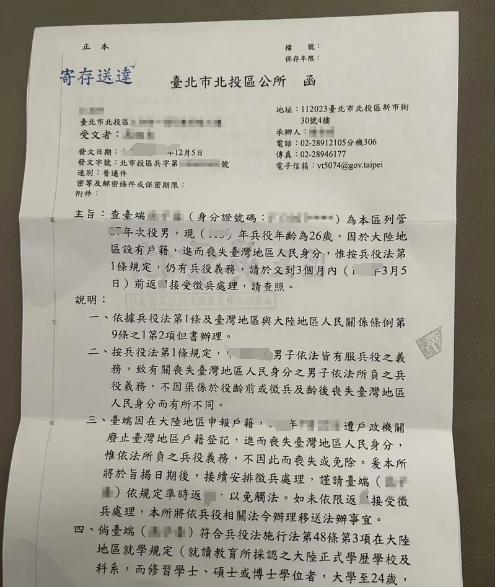 正本
檔號：
保存年限：
寄存送達
臺北市北投區公所 函
地址：112023臺北市北投區新市街
30號4樓
臺北市北投區
受文者：
承辦人：
電話：02-28912105分機306
發文日期：年12月5日
傳真：02-28946177
發文字號：北市投區兵字第號
電子信箱：vt5074@gov.taipei
速別：普通件
密等及解密條件或保密期限：
附件：
主旨：查臺端（身分證號碼：）為本區列管
年次役男，現（）年兵役年齡為26歲，因於大陸地
區設有戶籍，進而喪失臺灣地區人民身分，惟按兵役法第
1條規定，仍有兵役義務，請於文到3個月內（年3月5
日）前返接受徵兵處理，請查照。
說明：
一、依據兵役法第1條及臺灣地區與大陸地區人民關係條例第
9條之1第2項但書辦理。
二、按兵役法第1條規定，男子依法皆有服兵役之義
務，致有關喪失臺灣地區人民身分之男子依法所負之兵
役義務，不因渠係於役齡前或徵兵及齡後喪失臺灣地區
人民身分而有所不同。
三、臺端因在大陸地區申報戶籍，年遭戶政機關
廢止臺灣地區戶籍登記，進而喪失臺灣地區人民身分，
惟依法所負之兵役義務，不因此而喪失或免除。爰本所
將於旨揭日期後，接續安排徵兵處理，謹請臺端（
）依規定準時返，以免觸法。如未依限返接受徵
兵處理，本所將依兵役相關法令辦理移送法辦事宜。
四、倘臺端（）符合兵役法施行法第48條第3項在大陸
地區就學規定（就讀教育所採認之大陸正式學歷學校及
科系，而修習學士、碩士或博士學位者，大學至24歲